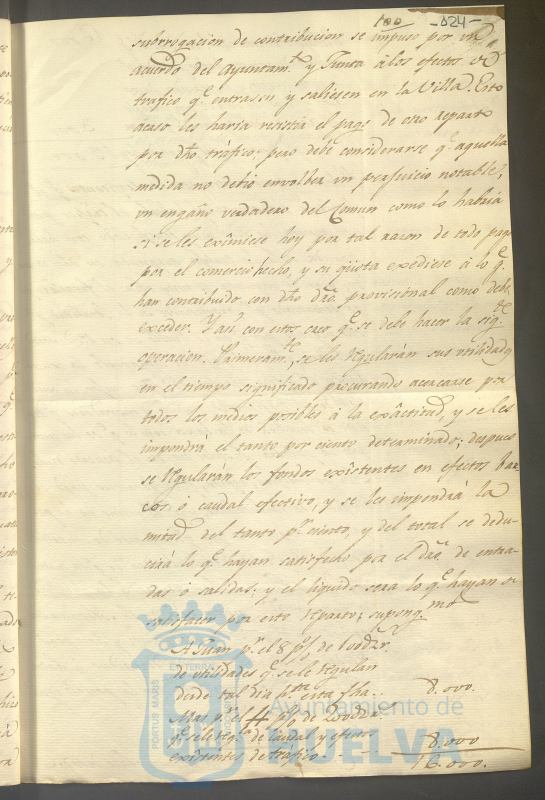 100 -024-
subrrogacion de contribucion se impuso por un
acuerdo del Ayuntam.to y Junta á los efectos de
trafico q.e entrasen y saliesen en la Villa. Esto
acaso les haria resistir el pago de este reparto
por dho tráfico; pero debe considerarse q.e aquella
medida no debió envolber un perjuicio notable,
un engaño verdadero del Comun como lo habria
si se les eximiese hoy por tal razon de todo pago
por el comercio hecho, y su qüota exediese á lo q.e
han contribuido con dho dro. provisional como debe
exceder. Y asi con estos creo q.e se debe hacer la sig.te
operacion. Primeram.te se les regularán sus utilidad.s
en el tiempo significado procurando acercarse por
todos los medios posibles á la exâctitud, y se les
impondrá el tanto por ciento determinado; despues
se regularán los fondos exîstentes en efectos bar
cos, ó caudal efectivo, y se les impondrá la
mitad del tanto p.r ciento, y del total se dedu-
cirá lo q.e hayan satisfecho por el dro. de entra-
das ó salidas; y el liquido sera lo q.e hayan de
satisfacer por este reparto; supong.mos
A Juan p.r el 8 p% de 100d r.
de utilidades q.e se le regulan
desde tal dia h.ta esta fha.. 8.000.
Mas p.r el 4 p% de 200d r.
q.e se le reg.n de caudal y efectos
existentes de tráfico... 8.000
16.000.
PORTUS MARIS ET TERRAE
Ayuntamiento de
HUELVA